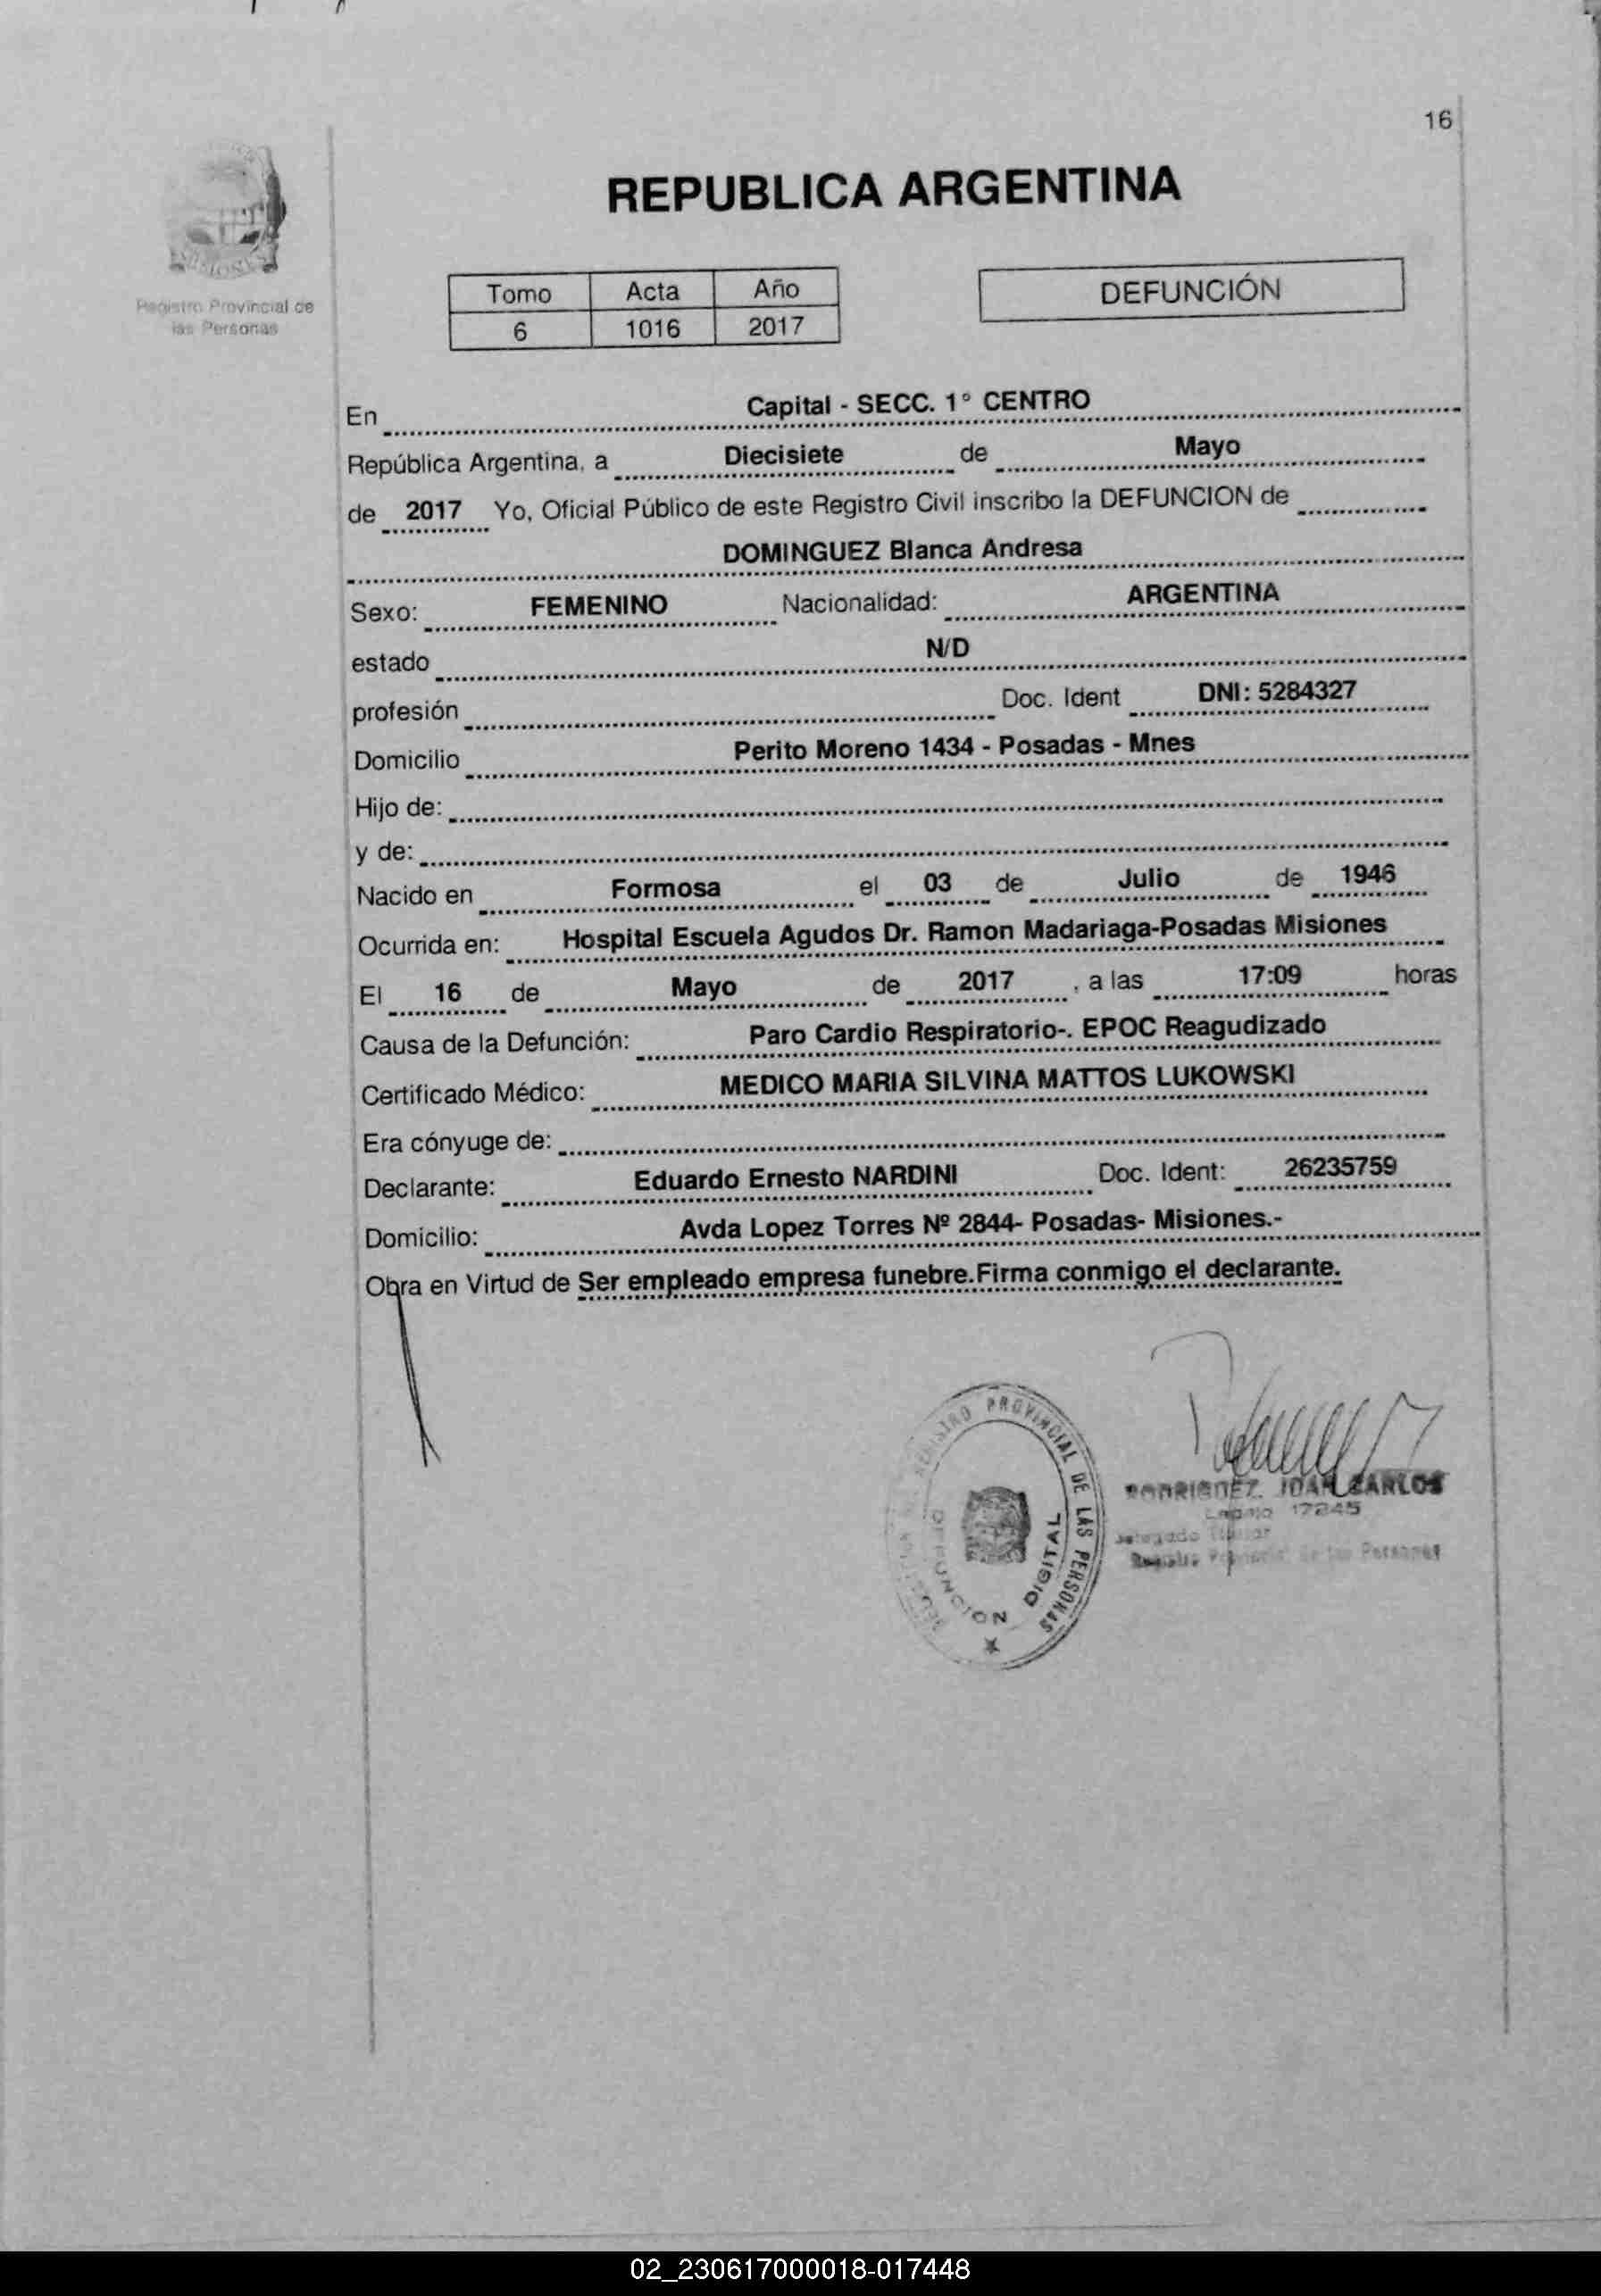 16
REPUBLICA ARGENTINA
Registro Provincial de
las Personas
Tomo Acta Año
6 1016 2017
DEFUNCIÓN
En Capital - SECC. 1° CENTRO
República Argentina, a Diecisiete de Mayo
de 2017 Yo, Oficial Público de este Registro Civil inscribo la DEFUNCION de
DOMINGUEZ Blanca Andresa
Sexo: FEMENINO Nacionalidad: ARGENTINA
estado N/D
profesión Doc. Ident DNI: 5284327
Domicilio Perito Moreno 1434 - Posadas - Mnes
Hijo de:
y de:
Nacido en Formosa el 03 de Julio de 1946
Ocurrida en: Hospital Escuela Agudos Dr. Ramon Madariaga-Posadas Misiones
El 16 de Mayo de 2017 , a las 17:09 horas
Causa de la Defunción: Paro Cardio Respiratorio-. EPOC Reagudizado
Certificado Médico: MEDICO MARIA SILVINA MATTOS LUKOWSKI
Era cónyuge de:
Declarante: Eduardo Ernesto NARDINI Doc. Ident: 26235759
Domicilio: Avda Lopez Torres Nº 2844- Posadas- Misiones.-
Obra en Virtud de Ser empleado empresa funebre.Firma conmigo el declarante.
PROVINCIAL DE LAS PERSONAS
DEFUNCION DIGITAL
CARLOS
17245
Personas
02_230617000018-017448